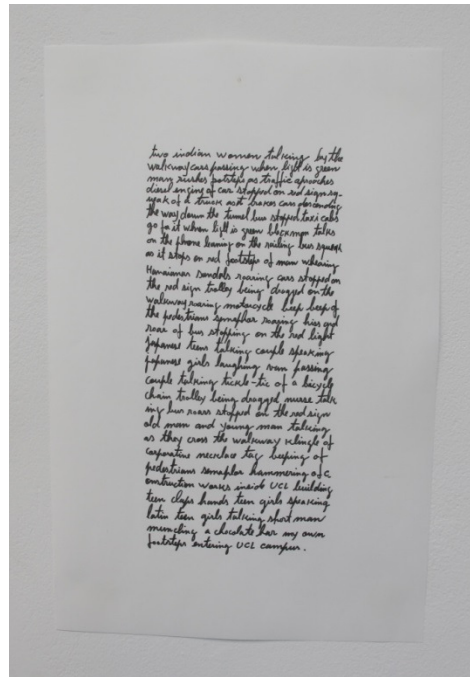 two indian women talking by the
walkway cars passing when light is green
many rushes footsteps as traffic aproaches
diesel engine of car stopped on red sign sq-
ueak of a truck as it brakes cars descending
the way down the tunnel bus stopped taxi cabs
go fast when light is green blackman talks
on the phone leaning on the railing bus squeak
as it stops on red footsteps of man whearing
Hawaianas sandals roaring cars stopped on
the red sign trolley being dragged on the
walkway roaring motorcycle beep beep of
the pedestrians semaphor roaring hiss and
roar of bus stopping on the red light
japanese teens talking couple speaking
japanese girls laughing van passing
couple talking tickle-tic of a bicycle
chain trolley being dragged nurse talk
ing bus roars stopped on the red sign
old man and young man talking
as they cross the walkway klingle of
corporative necklace tag beeping of
pedestrians semaphor hammering of c
onstruction works inside UCL building
teen claps hands teen girls speaking
latin teen girls talking short man
munching a chocolate bar my own
footsteps entering UCL campus.